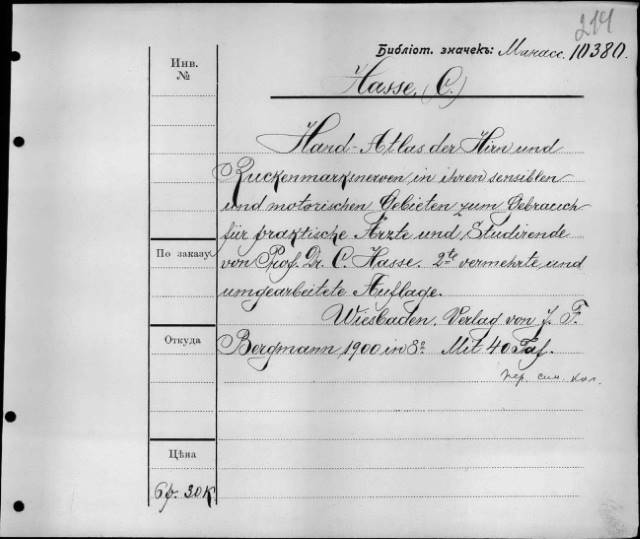 214
Библіот. значекъ: Манасс. 10380.
Инв.
№
Hasse, (C.)
Hand-Atlas der Hirn und
Ruckenmarksnerven, in ihren sensiblen
und motorischen Gebieten zum Gebrauch
für praktische Ärzte und Studirende
По заказу
von Prof. Dr. C. Hasse. 2te vermehrte und
umgearbeitete Auflage.
Wiesbaden. Verlag von J. F.
Откуда
Bergmann, 1900 in 8º. Mit 40 Taf.
пер. син. кол.
Цѣна
6 р. 30 к.